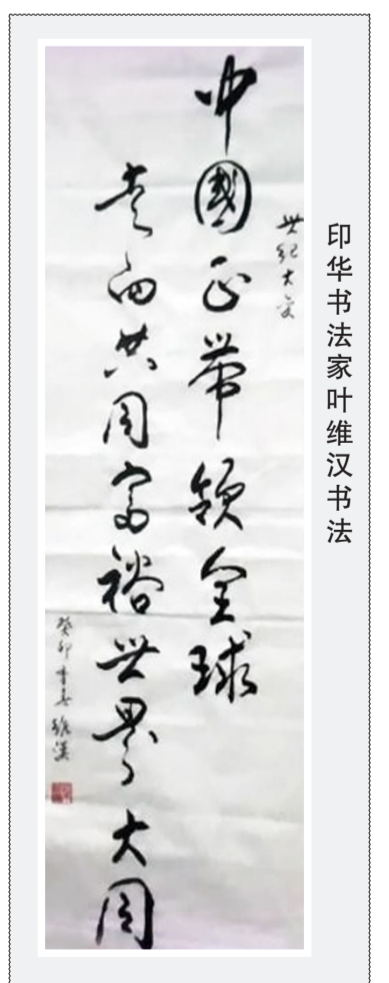 印华书法家叶维汉书法
世纪大变
中國正带领全球
走向共同富裕世界大同
癸卯季春維漢